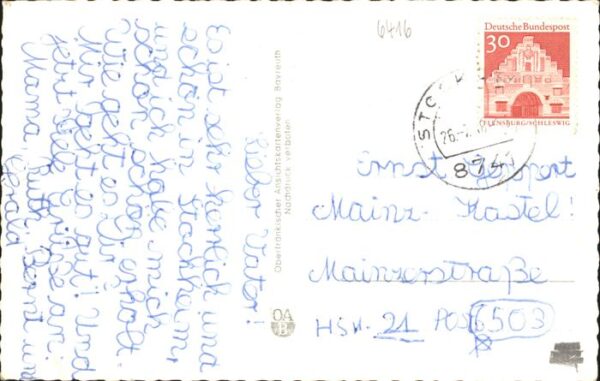 Lieber Vater!
Es ist sehr herrlich und
schön in Stockheim,
und ich habe mich
schon schön erholt.
Wie geht es Dir?
Mir geht es gut! Und
jetzt viele Grüsse an:
Mama, Ruth, Bernd und
Gerald
6416
Deutsche Bundespost
30
FLENSBURG/SCHLESWIG
STOCKHEIM
26.
8741
Oberfränkischer Ansichtskartenverlag Bayreuth
Nachdruck verboten
OA
B
Ernst Geppert
Mainz-Kastel!
Mainzerstraße
HSN. 21 Post 6503